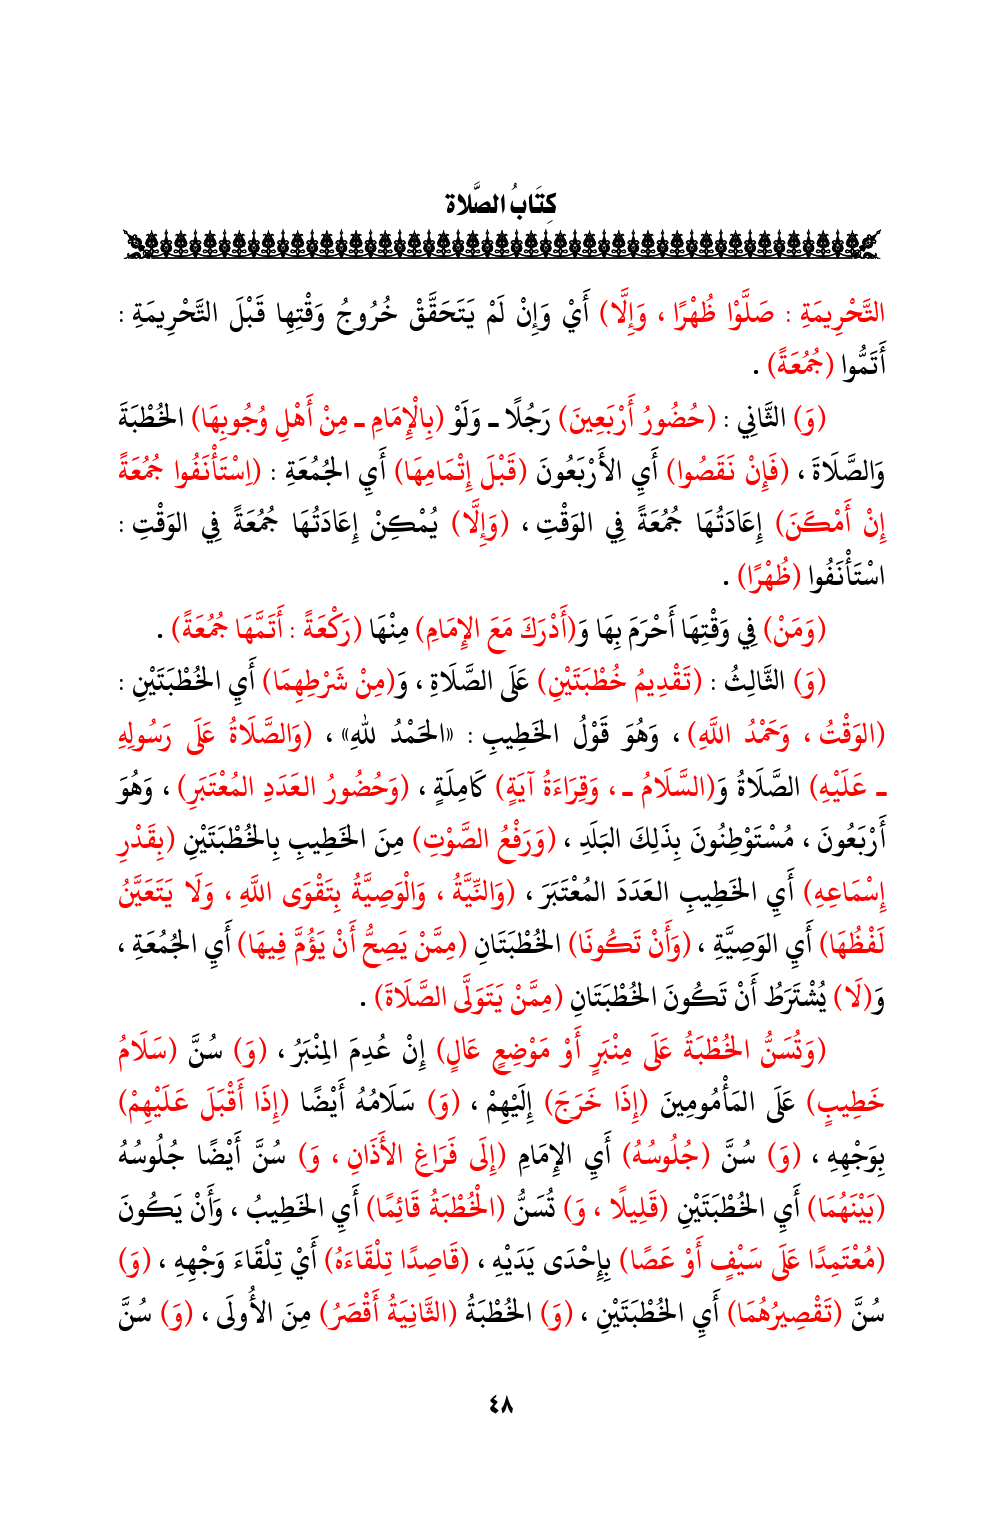 كِتَابُ الصَّلاة
التَّحْرِيمَةِ : صَلَّوْا ظُهْرًا ، وَإِلَّا) أَيْ وَإِنْ لَمْ يَتَحَقَّقْ خُرُوجُ وَقْتِهِا قَبْلَ التَّحْرِيمَةِ :
أَتَمُّوا (جُمُعَةً) .
(وَ) الثَّانِي : (حُضُورُ أَرْبَعِينَ) رَجُلًا ـ وَلَوْ (بِالْإِمَامِ ـ مِنْ أَهْلِ وُجُوبِهَا) الخُطْبَةَ
وَالصَّلَاةَ ، (فَإِنْ نَقَصُوا) أَيِ الأَرْبَعُونَ (قَبْلَ إِتْمَامِهَا) أَيِ الجُمُعَةِ : (اِسْتَأْنَفُوا جُمُعَةً
إِنْ أَمْكَنَ) إِعَادَتُهَا جُمُعَةً فِي الوَقْتِ ، (وَإِلَّا) يُمْكِنْ إِعَادَتُهَا جُمُعَةً فِي الوَقْتِ :
اسْتَأْنَفُوا (ظُهْرًا) .
(وَمَنْ) فِي وَقْتِهَا أَحْرَمَ بِهَا وَ(أَدْرَكَ مَعَ الإِمَامِ) مِنْهَا (رَكْعَةً : أَتَمَّهَا جُمُعَةً) .
(وَ) الثَّالِثُ : (تَقْدِيمُ خُطْبَتَيْنِ) عَلَى الصَّلَاةِ ، وَ(مِنْ شَرْطِهِمَا) أَيِ الخُطْبَتَيْنِ :
(الوَقْتُ ، وَحَمْدُ اللَّهِ) ، وَهُوَ قَوْلُ الخَطِيبِ : «الحَمْدُ للهِ» ، (وَالصَّلَاةُ عَلَى رَسُولِهِ
ـ عَلَيْهِ) الصَّلَاةُ وَ(السَّلَامُ ـ ، وَقِرَاءَةُ آيَةٍ) كَامِلَةٍ ، (وَحُضُورُ العَدَدِ المُعْتَبَرِ) ، وَهُوَ
أَرْبَعُونَ ، مُسْتَوْطِنُونَ بِذَلِكَ البَلَدِ ، (وَرَفْعُ الصَّوْتِ) مِنَ الخَطِيبِ بِالخُطْبَتَيْنِ (بِقَدْرِ
إِسْمَاعِهِ) أَيِ الخَطِيبِ العَدَدَ المُعْتَبَرَ ، (وَالنِّيَّةُ ، وَالْوَصِيَّةُ بِتَقْوَى اللَّهِ ، وَلَا يَتَعَيَّنُ
لَفْظُهَا) أَيِ الوَصِيَّةِ ، (وَأَنْ تَكُونَا) الخُطْبَتَانِ (مِمَّنْ يَصِحُّ أَنْ يَؤُمَّ فِيهَا) أَيِ الجُمُعَةِ ،
وَ(لَا) يُشْتَرَطُ أَنْ تَكُونَ الخُطْبَتَانِ (مِمَّنْ يَتَوَلَّى الصَّلَاةَ) .
(وَتُسَنُّ الخُطْبَةُ عَلَى مِنْبَرٍ أَوْ مَوْضِعٍ عَالٍ) إِنْ عُدِمَ المِنْبَرُ ، (وَ) سُنَّ (سَلَامُ
خَطِيبٍ) عَلَى المَأْمُومِينَ (إِذَا خَرَجَ) إِلَيْهِمْ ، (وَ) سَلَامُهُ أَيْضًا (إِذَا أَقْبَلَ عَلَيْهِمْ)
بِوَجْهِهِ ، (وَ) سُنَّ (جُلُوسُهُ) أَيِ الإِمَامِ (إِلَى فَرَاغِ الأَذَانِ ، وَ) سُنَّ أَيْضًا جُلُوسُهُ
(بَيْنَهُمَا) أَيِ الخُطْبَتَيْنِ (قَلِيلًا ، وَ) تُسَنُّ (الْخُطْبَةُ قَائِمًا) أَيِ الخَطِيبُ ، وَأَنْ يَكُونَ
(مُعْتَمِدًا عَلَى سَيْفٍ أَوْ عَصًا) بِإِحْدَى يَدَيْهِ ، (قَاصِدًا تِلْقَاءَهُ) أَيْ تِلْقَاءَ وَجْهِهِ ، (وَ)
سُنَّ (تَقْصِيرُهُمَا) أَيِ الخُطْبَتَيْنِ ، (وَ) الخُطْبَةُ (الثَّانِيَةُ أَقْصَرُ) مِنَ الأُولَى ، (وَ) سُنَّ
٤٨